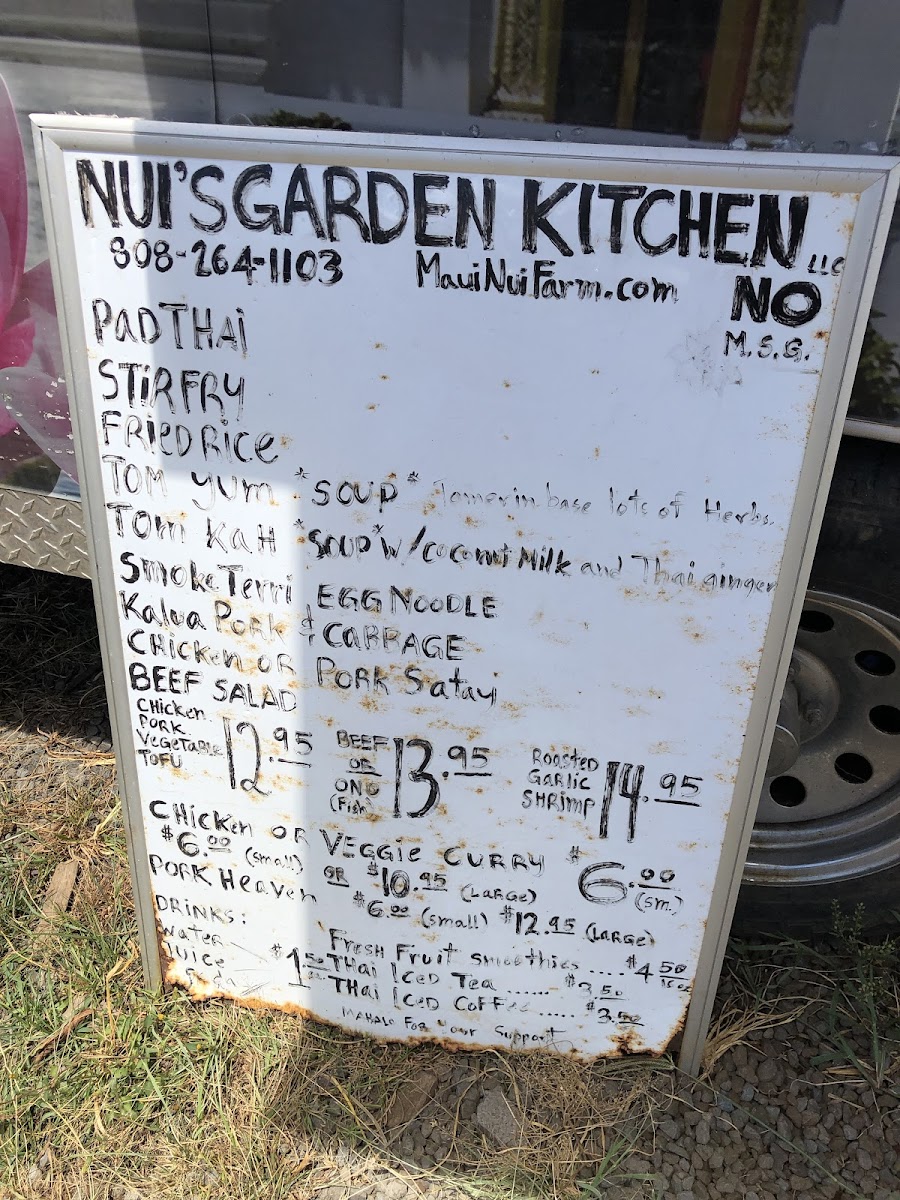 NUI'S GARDEN KITCHEN LLC
808-264-1103 MauiNuiFarm.com NO
M.S.G.
PAD THAi
STiR FRY
FRiED RiCe
TOM yum *SOUP* Tamerin base lots of Herbs.
TOM KaH *SOUP* W/COCONUT Milk and Thai ginger
Smoke Terri EGG NOODLE
Kalua Pork & CABBAGE
CHICKen OR PORK Satay
BEEF SALAD
CHicKen PORK VegeTABLE TOFU 12.95 BEEF OR ONO (Fish) 13.95 Roasted Garlic SHRImp 14.95
CHicken OR VEGGIE CURRY $6.00 (sm.)
$6.00 (small) OR $10.95 (LARGE)
PORK Heaven $6.00 (small) $12.95 (LARGE)
DRINKS:
water Fresh Fruit smoothies .... $4.50
Juice $1.50 THai Iced Tea ...... $3.50
Soda THai Iced Coffee ..... $3.50
MAHALO FOR Your Support